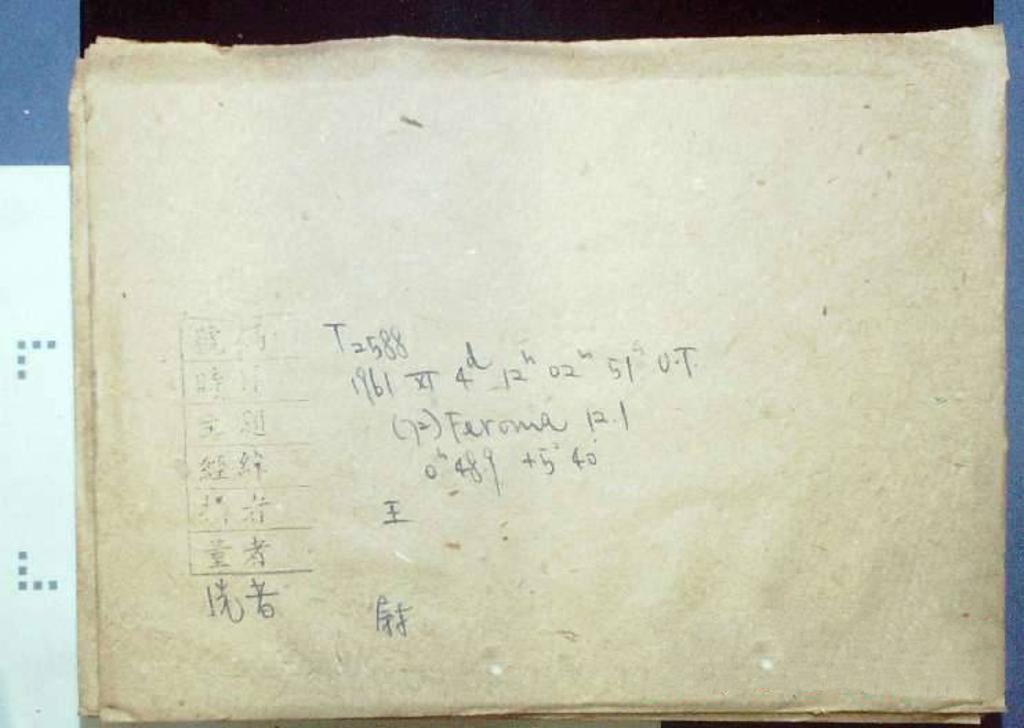 號碼 T2588
時間 1961 XI 4ᵈ 12ʰ 02ᵐ 51ˢ U.T.
主題 (72) Feronia 12.1
經緯 0ʰ 48.9 +5° 40'
攝者 王
量者
洗者